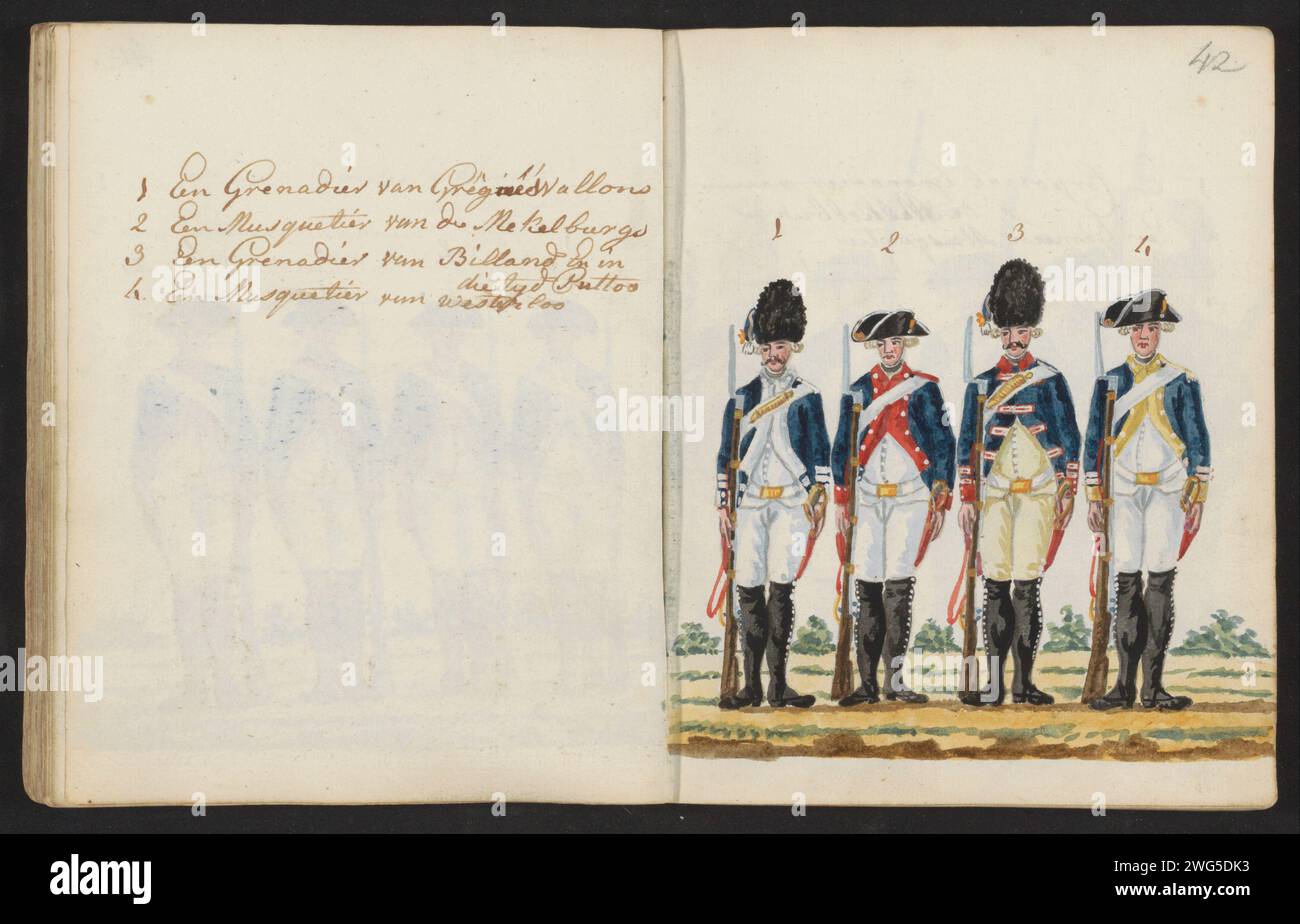 1 Een Grenadier van Grēnier Wallons
2 Een Musquetier van de Mekelburgs
3 Een Grenadier van Billand in
die tyd Puttoo
4. Een Musquetier van westerloo
42
1
2
3
4
alamy
Image ID: 2WG5DK3
www.alamy.com